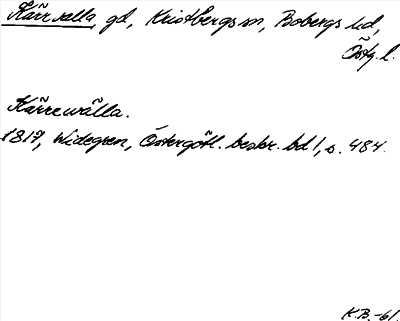 Kärrvalla, gd, Kristbergs sn, Bobergs hd,
Östg. l.
Kärrewälla.
1817, Widegren, Östergötl. beskr. bd 1, s. 484.
K.B.-61.